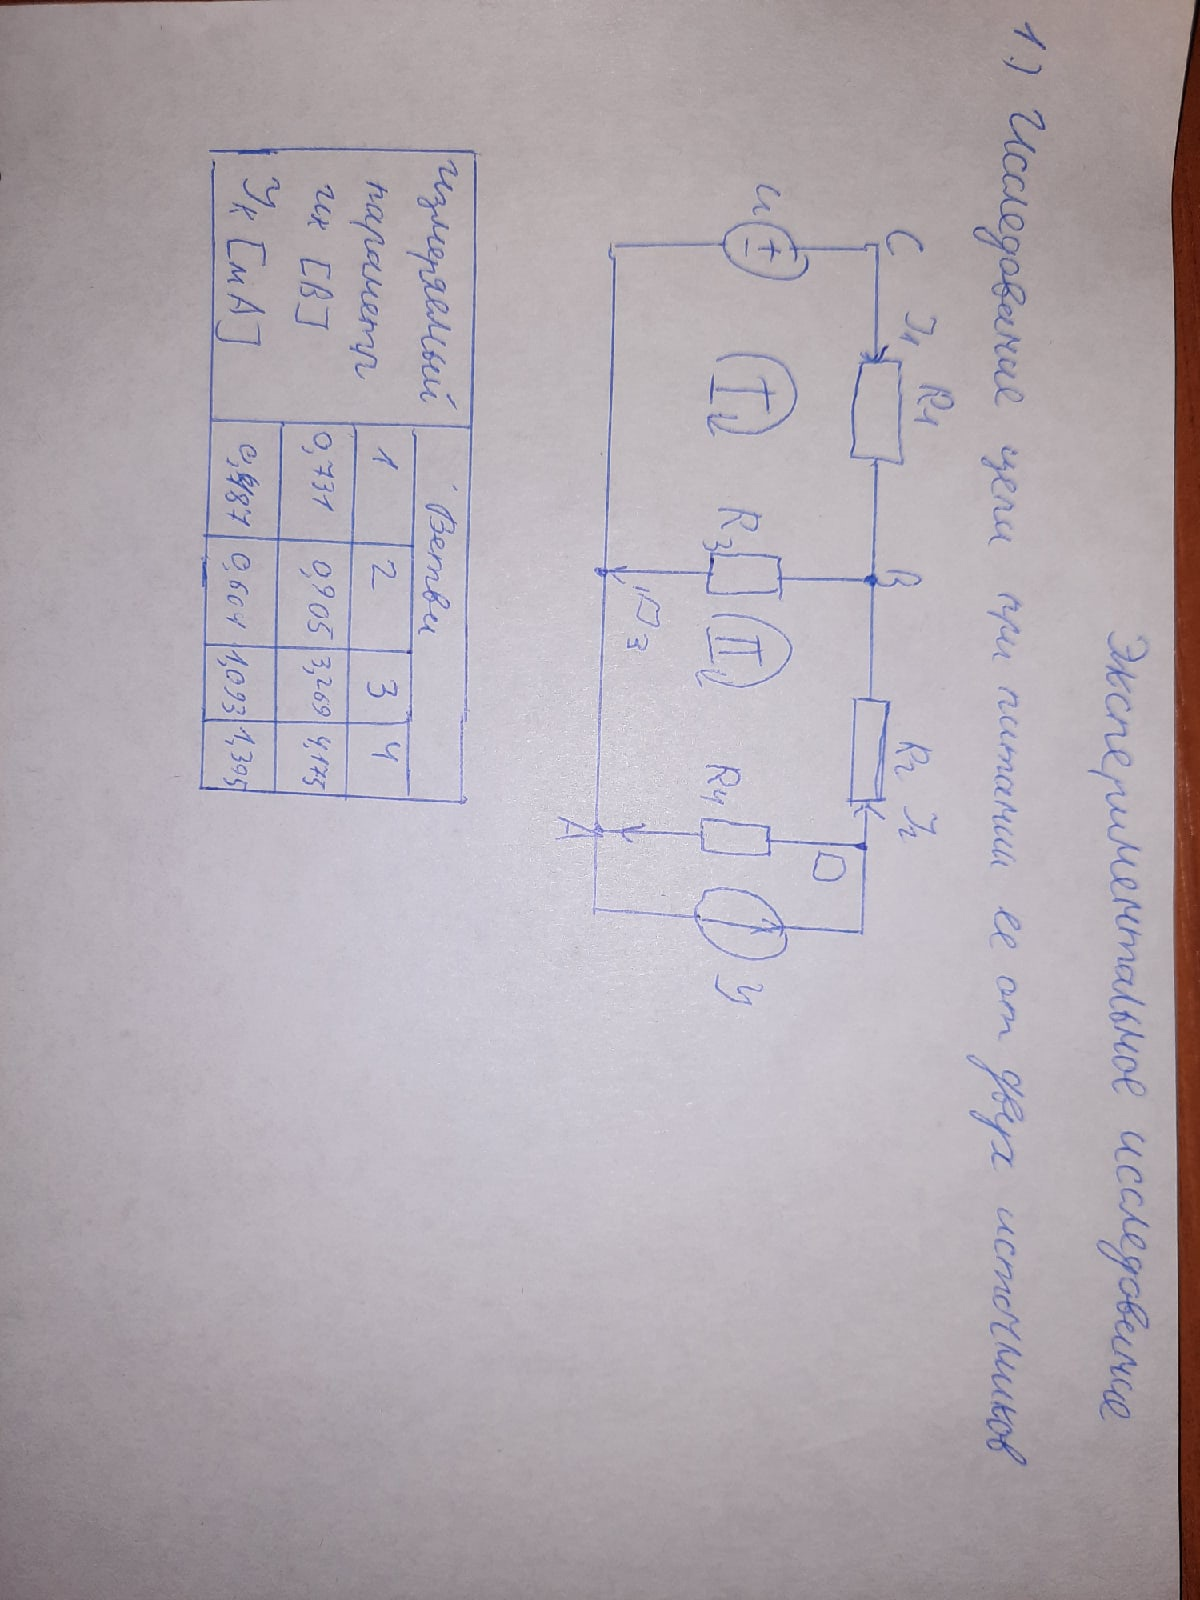 Экспериментальное исследование
1.) Исследование цепи при питании ее от двух источников
C J1 R1 B R2 J2
U I R3 II R4 D J
J3
A
измеряемый параметр Ветви
1 2 3 4
Uк [В] 0,731 0,905 3,269 4,175
Jк [мА] 0,487 0,604 1,093 1,395